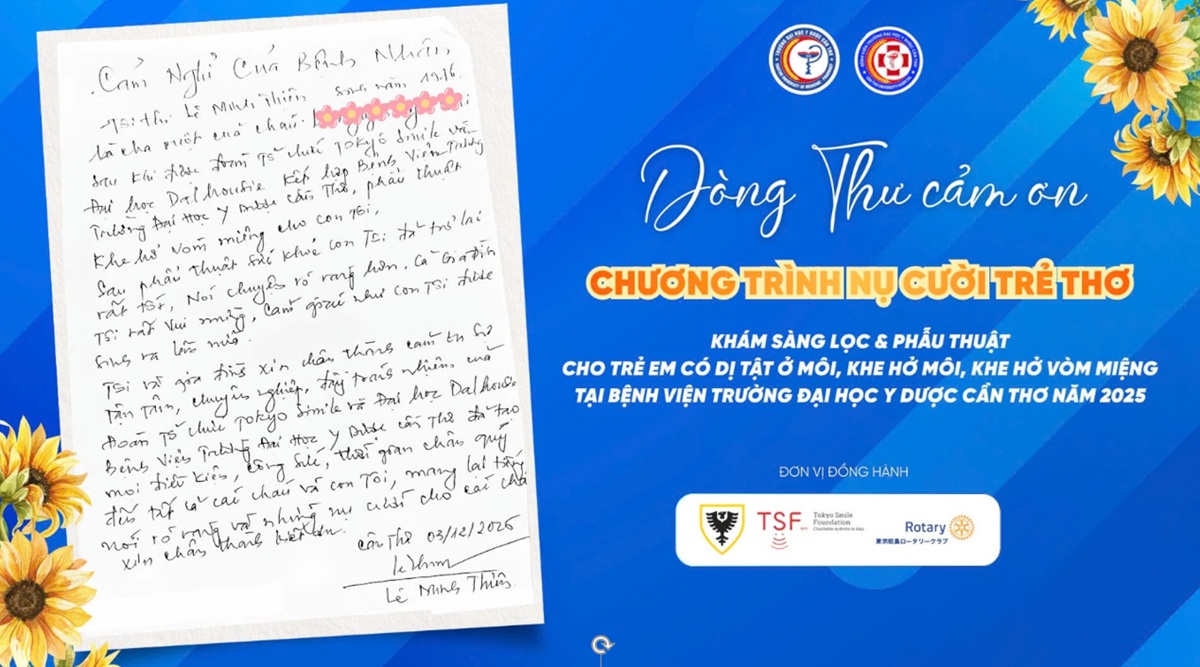 Cảm Nghĩ Của Bệnh Nhân
Tôi tên Lê Minh Thiện sinh năm 1976.
là cha ruột của cháu
Sau khi được đoàn Tổ chức Tokyo Simile và
Đại học Dalhousie kết hợp Bệnh Viện Trường
Trường Đại Học Y Dược Cần Thơ, phẩu thuật
Khe hở vòm miệng cho con Tôi,
Sau phẩu thuật sức khỏe con Tôi đã trở lại
rất tốt, Nói chuyện rỏ ràng hơn, Cả Gia đình
Tôi rất vui mừng, Cảm giác như con Tôi được
Sinh ra lần nữa.
Tôi và gia đình xin chân thành cảm ơn sự
Tận Tâm, chuyên nghiệp, đầy trách nhiệm của
Đoàn Tổ chức Tokyo Simile và Đại học Dalhousie
Bệnh Viện Trường Đại Học Y Dược Cần Thơ đã tạo
mọi điều kiện, công sức, thời gian chân quý
đến tất cả các cháu và con Tôi, mang lại tiếng
nói rỏ ràng và những nụ cười cho các cháu
xin chân thành biết ơn.
Cần Thơ 03/12/2025
Lê Minh Thiện
Dòng Thư cảm ơn
CHƯƠNG TRÌNH NỤ CƯỜI TRẺ THƠ
KHÁM SÀNG LỌC & PHẪU THUẬT
CHO TRẺ EM CÓ DỊ TẬT Ở MÔI, KHE HỞ MÔI, KHE HỞ VÒM MIỆNG
TẠI BỆNH VIỆN TRƯỜNG ĐẠI HỌC Y DƯỢC CẦN THƠ NĂM 2025
ĐƠN VỊ ĐỒNG HÀNH
TSF
Tokyo Smile
Foundation
Rotary
東京昭島ロータリークラブ